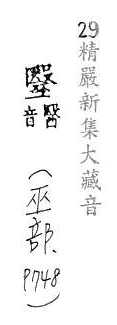 29精嚴新集大藏音
毉
醫音
(巫部, P748)